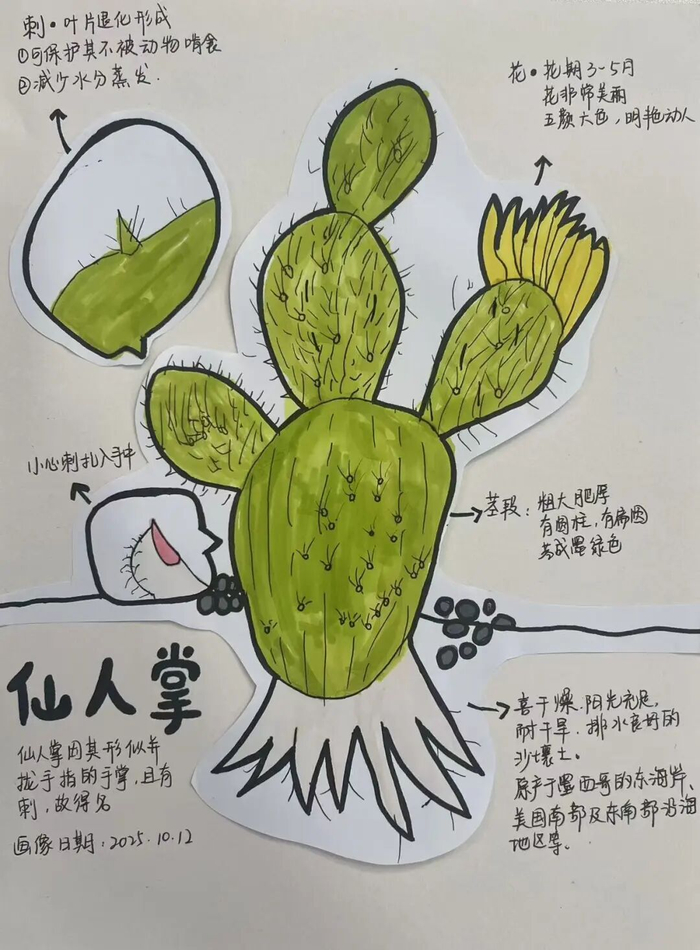 刺·叶片退化形成
①可保护其不被动物啃食
②减少水分蒸发.
花·花期3-5月
花非常美丽
五颜六色,明艳动人
小心刺扎入手中
茎段:粗大肥厚
有圆柱,有扁圆
墨绿色
仙人掌
仙人掌因其形似并
拢手指的手掌,且有
刺,故得名
画像日期:2025.10.12
喜干燥.阳光充足,
耐干旱.排水良好的
沙壤土。
原产于墨西哥的东海岸、
美国南部及东南部沿海
地区等。